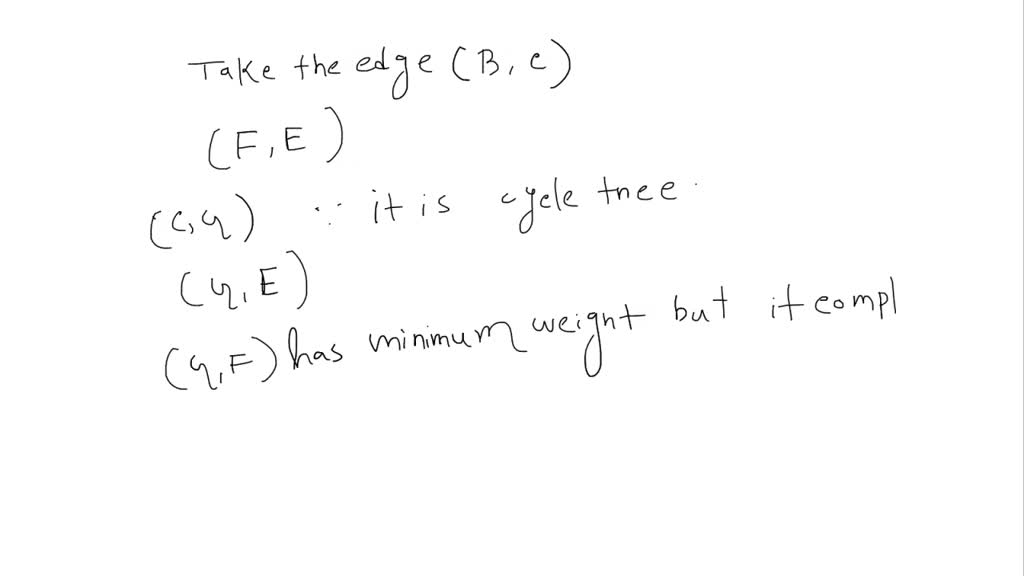 Take the edge (B, c)
(F, E)
(c, G) ∵ it is cycle tree.
(G, E)
(G, F) has minimum weight but it compl